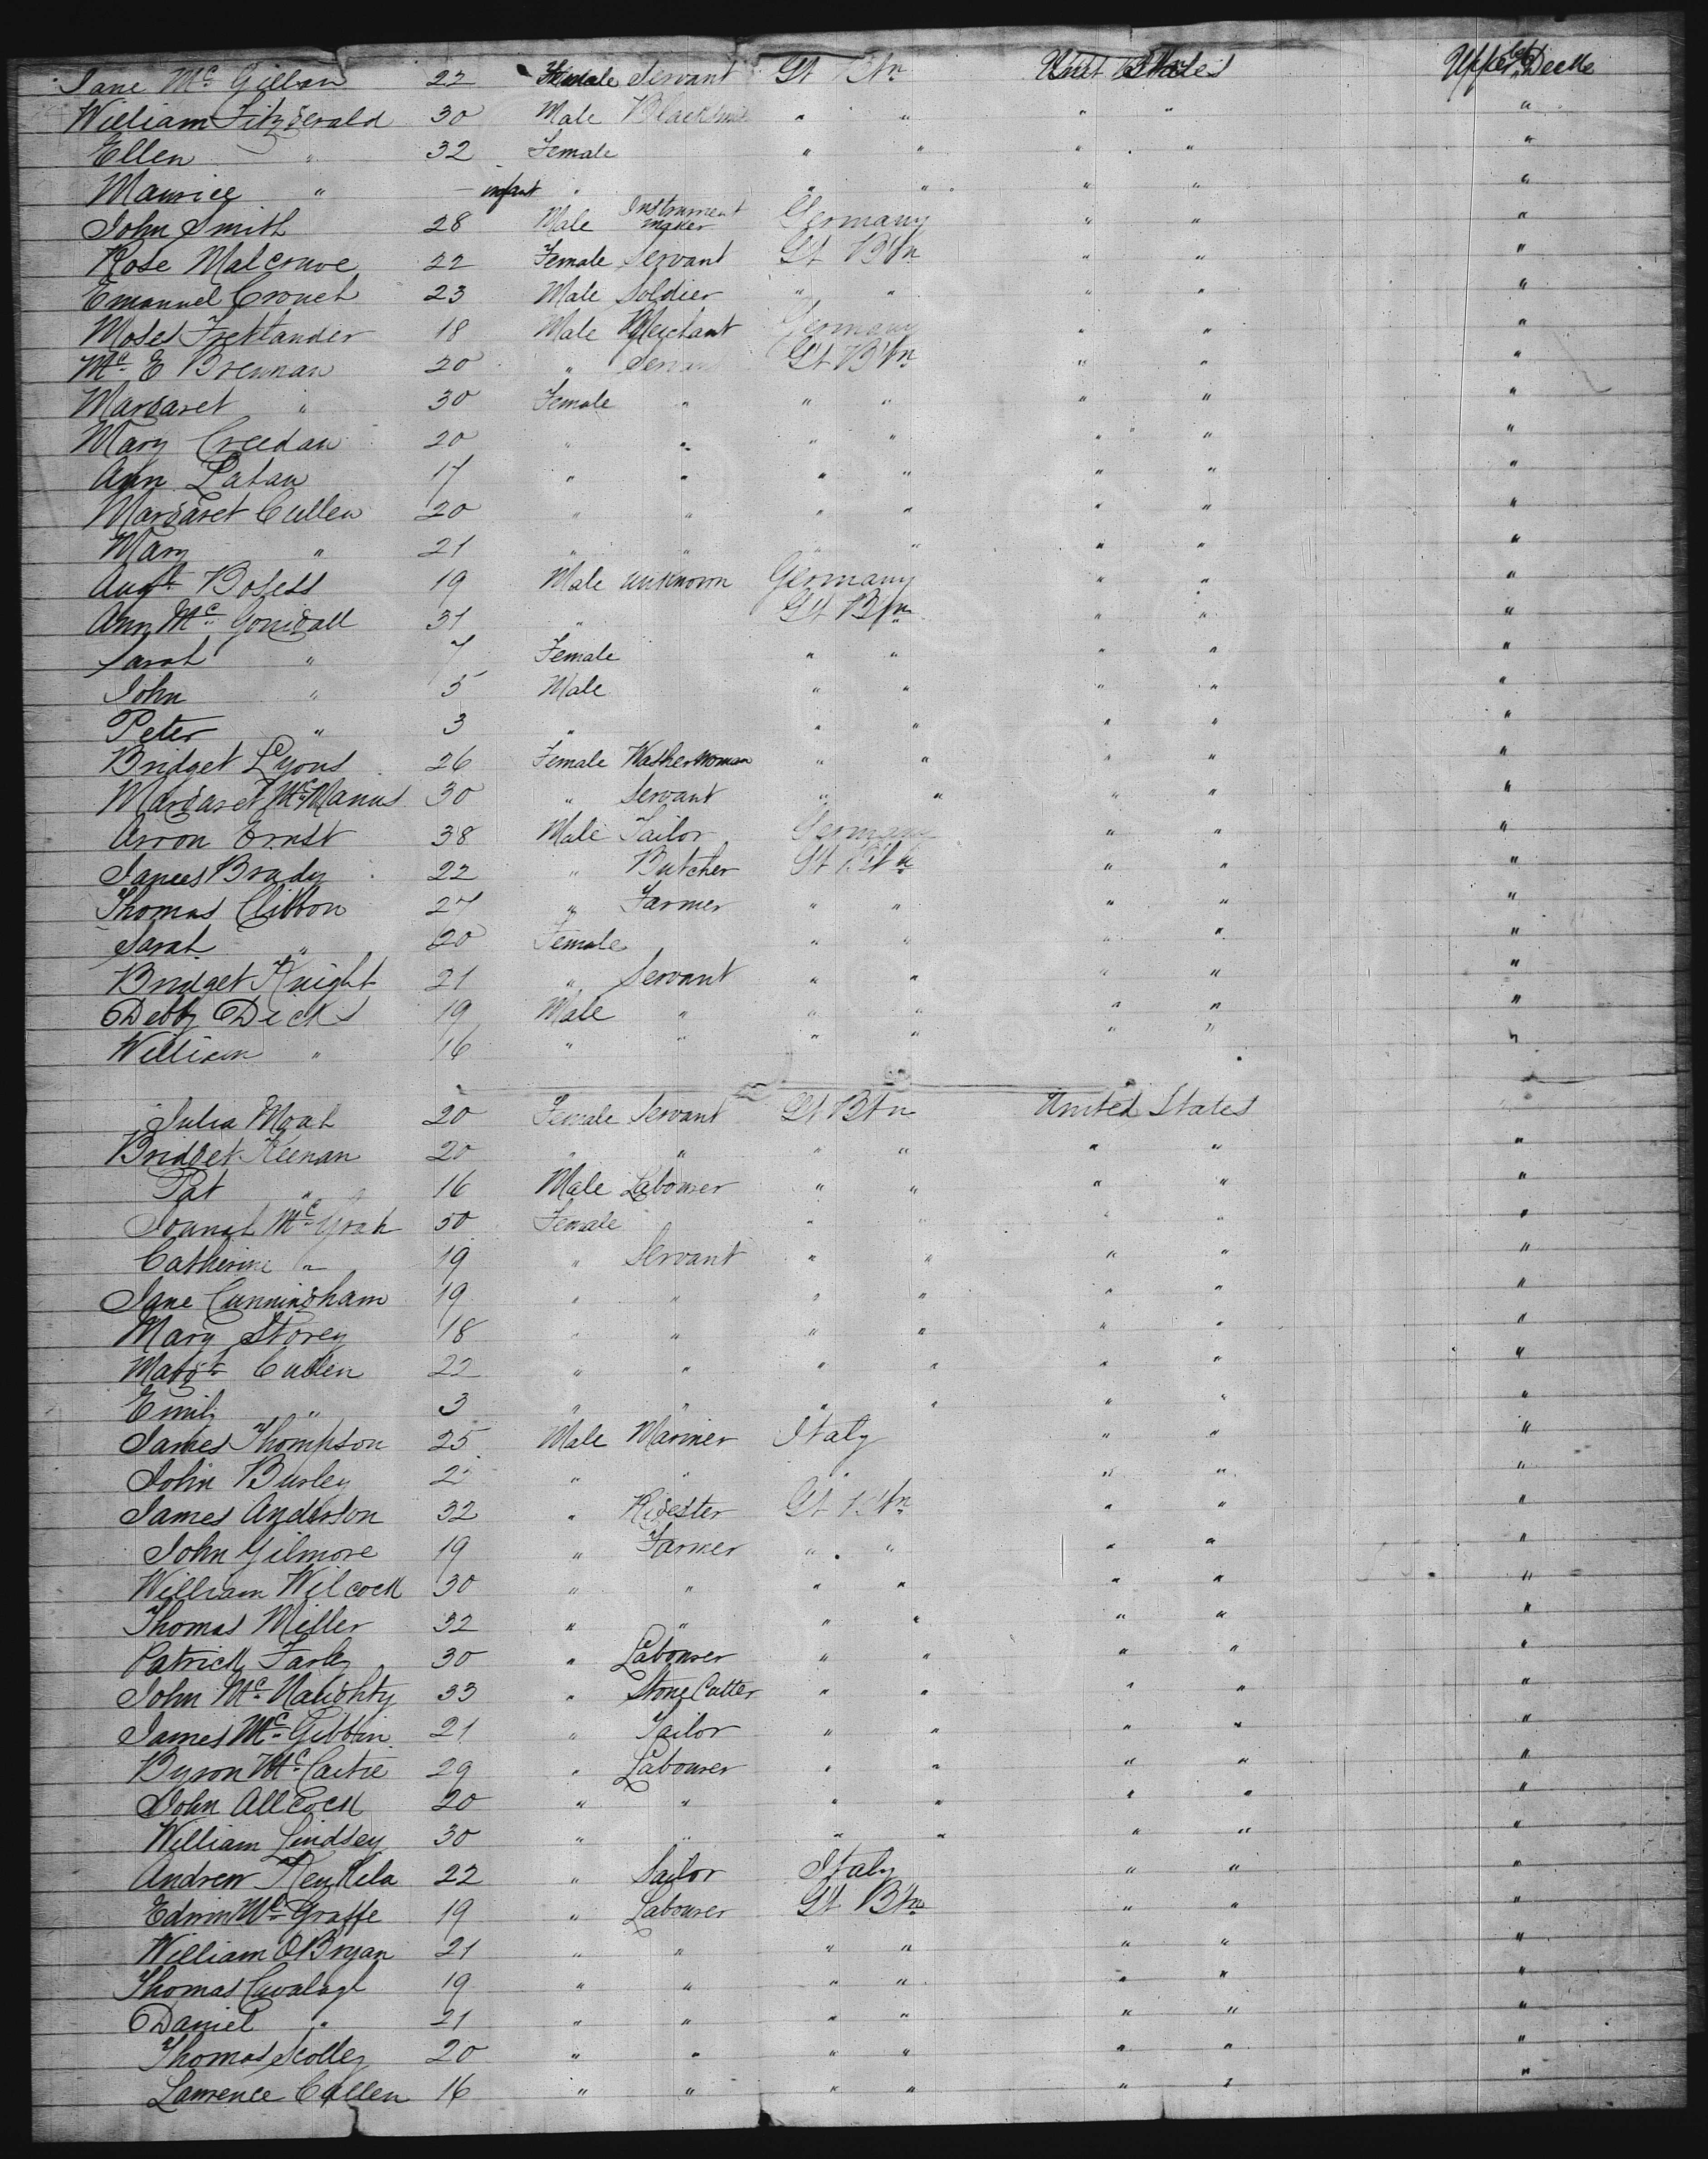 Jane Mc Gillan 22 Female Servant Gt Btn United States Upper Decke
William Fitzgerald 30 Male Blacksmith " " " " "
Ellen " 32 Female " " " " "
Maurice " — infant " " " " " "
John Smith 28 Male Instrument maker Germany " " "
Rose Malcrowe 22 Female Servant Gt Btn " " "
Emanuel Crouch 23 Male Soldier " " " " "
Moses Fretlander 18 Male Merchant Germany " " "
Mc E Brennan 20 " Servant Gt Btn " " "
Margaret " 30 Female " " " " " "
Mary Creedan 20 " " " " " " "
Ann Patan 17 " " " " " " "
Margaret Cullen 20 " " " " " " "
Mary " 21 " " " " " " "
Augt Bosess 19 Male unknown Germany " " "
Ann Mc Gonigall 31 " Gt Btn " " "
Sarah " 7 Female " " " " "
John " 5 Male " " " " "
Peter " 3 " " " " " "
Bridget Lyons 26 Female Washerwoman " " " " "
Margaret McManus 30 " Servant " " " " "
Arron Ernst 38 Male Tailor Germany " " "
James Brady 22 " Butcher Gt Btn " " "
Thomas Clibbon 27 " Farmer " " " " "
Sarah " 20 Female " " " " "
Bridget Knight 21 " Servant " " " " "
Debby Dicks 19 Male " " " " " "
William " 16 " " " " " " "
Julia Moah 20 Female Servant Gt Btn United States
Bridget Keenan 20 " " " " " " "
Pat " 16 Male Labourer " " " " "
Jounah Mc Grah 50 Female " " " " "
Catherine " 19 " Servant " " " " "
Jane Cunningham 19 " " " " " " "
Mary Storey 18 " " " " " " "
Margt Cullen 22 " " " " " " "
Emily " 3 " " " " " " "
James Thompson 25 Male Mariner Italy " " "
John Burley 2 " " " " " "
James Anderson 32 " Gt Btn " " "
John Gilmore 19 " Farmer " " " " "
William Wilcock 30 " " " " " " "
Thomas Miller 32 " " " " " " "
Patrick Farley 30 " Labourer " " " " "
John Mc Naughty 33 " Stone Cutter " " " " "
James Mc Gibbin 21 " Tailor " " " " "
Byron Mc Cartie 29 " Labourer " " " " "
John Allcock 20 " " " " " " "
William Lindsey 30 " " " " " " "
Andrew Keukela 22 " Sailor Italy " " "
Edwin Mc Graffe 19 " Labourer Gt Btn " " "
William OBryan 21 " " " " " " "
Thomas Cavalagh 19 " " " " " " "
Daniel " 21 " " " " " " "
Thomas Scolley 20 " " " " " " "
Lawrence Callen 16 " " " " " " "